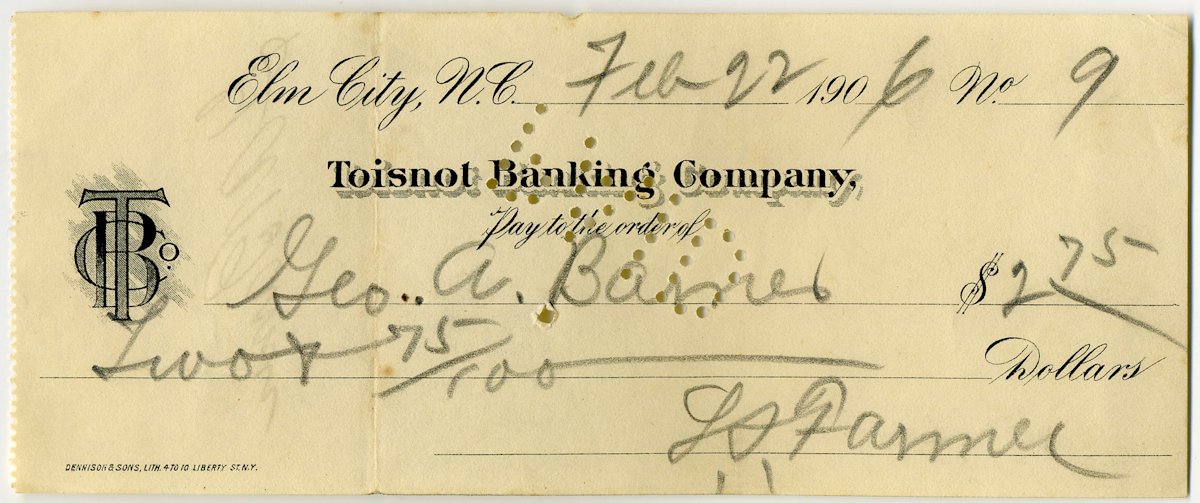 Elm City, N.C. Feb 22 1906 No. 9
Toisnot Banking Company,
Pay to the order of
TBCo.
Geo. A. Barnes $2 75
Two & 75/100 Dollars
L S Farmer
DENNISON & SONS, LITH. 4 TO 10 LIBERTY ST. N.Y.